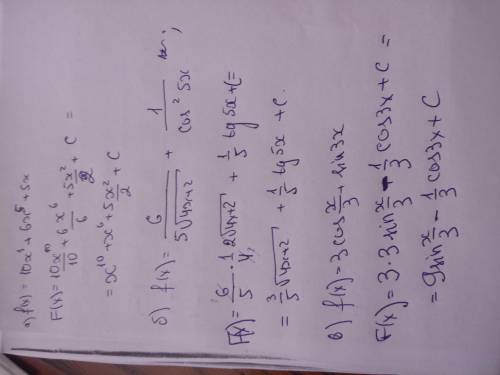 а) f(x) = 10x⁹ + 6x⁵ + 5x
F(x) = 10x¹⁰/10 + 6x⁶/6 + 5x²/2 + C =
= x¹⁰ + x⁶ + 5x²/2 + C
б) f(x) = 6/(5√(4x+2)) + 1/cos² 5x ;
F(x) = 6/5 · 1/4 · 2√(4x+2) + 1/5 tg 5x + C =
= 3/5 √(4x+2) + 1/5 tg 5x + C.
в) f(x) = 3 cos x/3 + sin 3x
F(x) = 3 · 3 sin x/3 - 1/3 cos 3x + C =
= 9 sin x/3 - 1/3 cos 3x + C